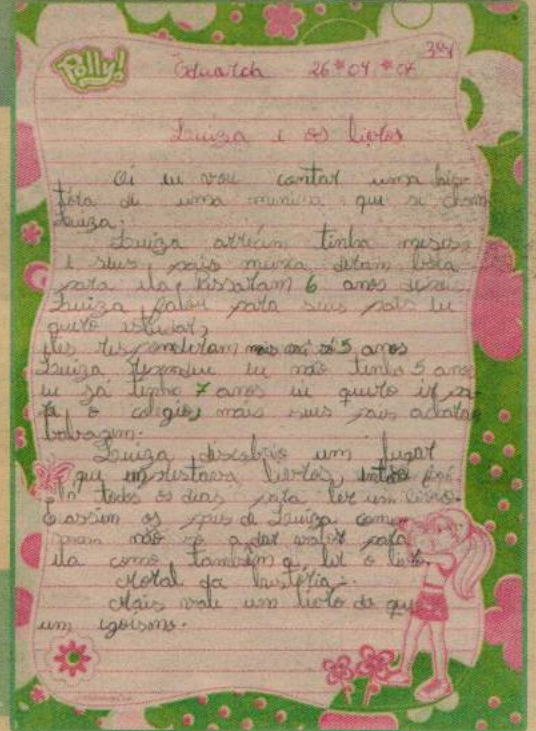 Polly!
Eduarda 26*04*07
Luiza e os livros
Oi eu vou contar uma his-
tóra de uma menina que se cham
Luiza.
Luiza tinha meses
e seus pais nunca deram bola
para ela, Passaram 6 anos depois
Luiza falou para seus pais eu
quero estudar,
eles responderam mais só 5 anos
Luiza respondeu eu não tinho 5 anos
eu já tinho 7 anos eu quero ir pa-
ra o colégio, mais seus pais acharão
bobagem.
Luiza discobrio um lugar
que emprestava livros, então foi
lá todos os dias para ler um livro.
E assim os pais de Luiza come-
çaram não só a dar valor para
ela como também a ler o livro.
Moral da história.
Mais vale um livro do que
um igoismo.